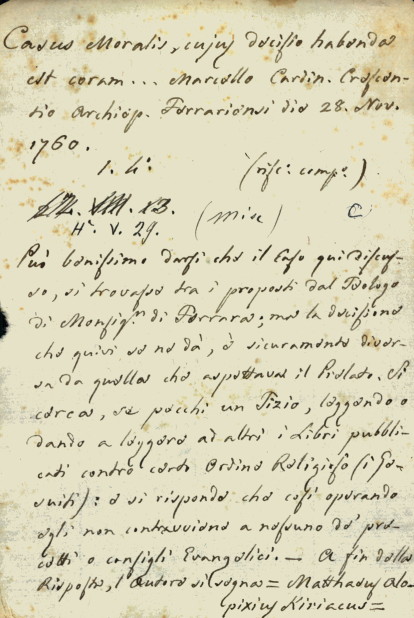 Casus Moralis, cujus decisio habenda
est coram... Marcello Cardin. Crescen-
tio Archiep. Ferrariensi die 28. Nov.
1760.
1. 4º. (risc. comp.)
H. V. 29. (Misc) C
Può benissimo darsi che il Caso qui discus-
so, si trovasse tra i proposti dal Teologo
di Monsig.r di Ferrara; ma la decisione
che quivi se ne dà, è sicuramente diver-
sa da quella che aspettava il Prelato. Si
cerca, se pecchi un Tizio, leggendo o
dando a leggere ad altri i Libri pubbli-
cati contro certo Ordine Religioso (i Ge-
suiti): e si risponde che così operando
egli non contravviene a nessuno de' pre-
cetti o consigli Evangelici. — A fin della
Risposta, l'Autore si segna = Matthaeus Alo-
pixius Kiriacus =